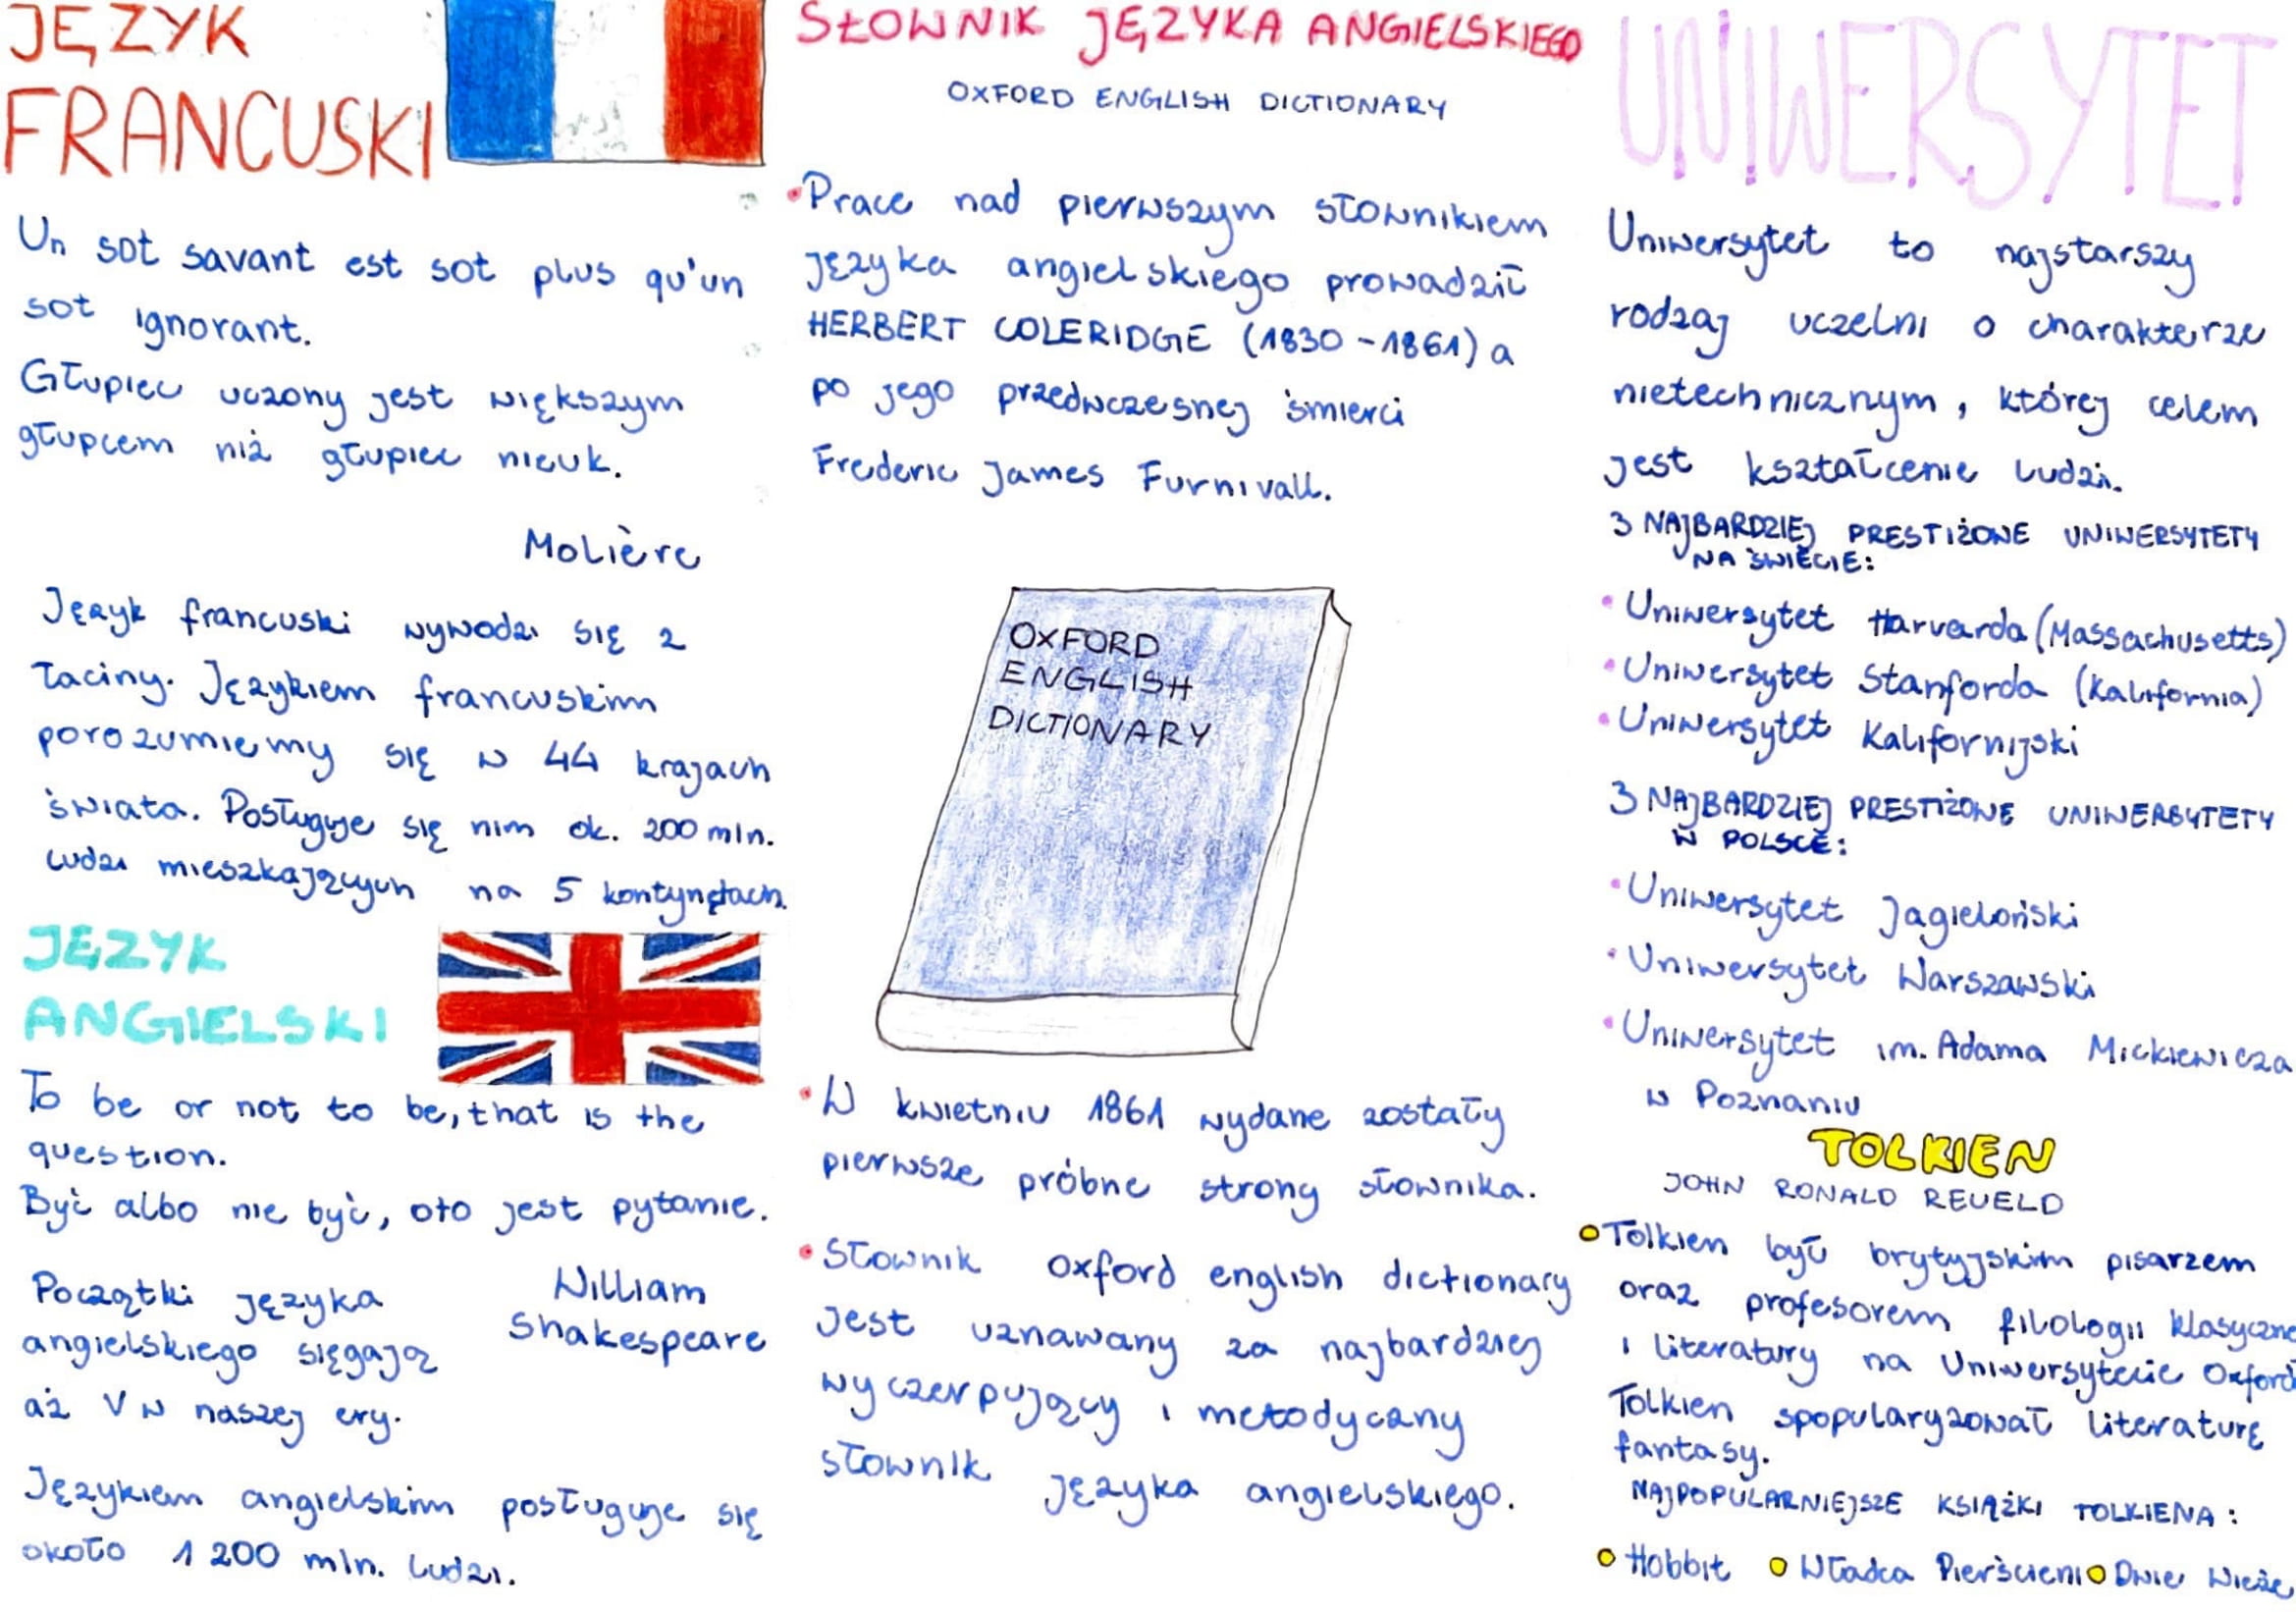 JĘZYK
FRANCUSKI
Un sot savant est sot plus qu'un
sot ignorant.
Głupiec uczony jest większym
głupcem niż głupiec nieuk.
Molière
Język francuski wywodzi się z
łaciny. Językiem francuskim
porozumiemy się w 44 krajach
świata. Posługuje się nim ok. 200 mln.
ludzi mieszkających na 5 kontynętach.
JĘZYK
ANGIELSKI
To be or not to be, that is the
question.
Być albo nie być, oto jest pytanie.
William
Shakespeare
Początki języka
angielskiego sięgają
aż V w naszej ery.
Językiem angielskim posługuje się
około 1 200 mln. ludzi.
SŁOWNIK JĘZYKA ANGIELSKIEGO
OXFORD ENGLISH DICTIONARY
• Prace nad pierwszym słownikiem
języka angielskiego prowadził
HERBERT COLERIDGE (1830 - 1861) a
po jego przedwczesnej śmierci
Frederic James Furnivall.
OXFORD
ENGLISH
DICTIONARY
• W kwietniu 1861 wydane zostały
pierwsze próbne strony słownika.
• Słownik oxford english dictionary
jest uznawany za najbardziej
wyczerpujący i metodyczny
słownik języka angielskiego.
UNIWERSYTET
Uniwersytet to najstarszy
rodzaj uczelni o charakterze
nietechnicznym, której celem
jest kształcenie ludzi.
3 NAJBARDZIEJ PRESTIŻOWE UNIWERSYTETY
NA ŚWIECIE:
• Uniwersytet Harvarda (Massachusetts)
• Uniwersytet Stanforda (Kalifornia)
• Uniwersytet Kalifornijski
3 NAJBARDZIEJ PRESTIŻOWE UNIWERSYTETY
W POLSCE:
• Uniwersytet Jagieloński
• Uniwersytet Warszawski
• Uniwersytet im. Adama Mickiewicza
w Poznaniu
TOLKIEN
JOHN RONALD REUELD
• Tolkien był brytyjskim pisarzem
oraz profesorem filologii klasyczne
i literatury na Uniwersytecie Oxford
Tolkien spopularyzował literaturę
fantasy.
NAJPOPULARNIEJSZE KSIĄŻKI TOLKIENA:
• Hobbit • Władca Pierścieni • Dwie Wieże